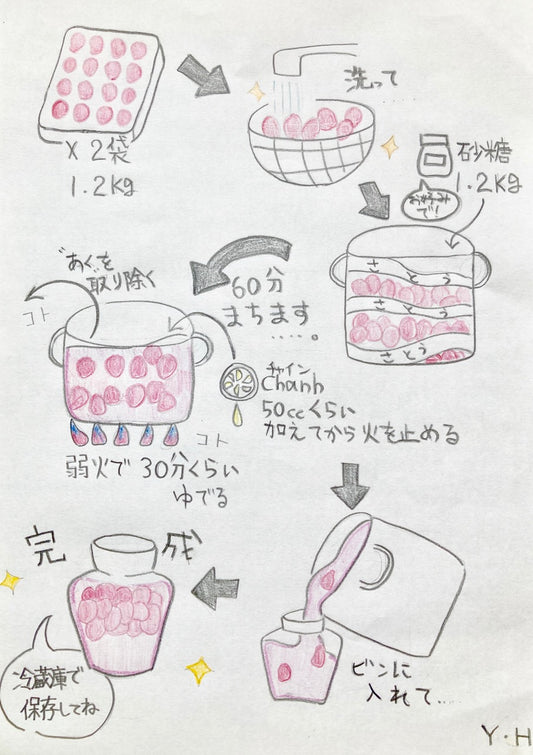 × 2袋
1.2kg
洗って
.....
砂糖
1.2kg
お好み
で!
さとう
さとう
さとう
60分
まちます
.....。
"あく"を
取り除く
コト
コト
チャイン
Chanh
50ccくらい
加えてから火を止める
弱火で 30分くらい
ゆでる
ビンに
入れて....
完成
冷蔵庫で
保存してね
Y・H